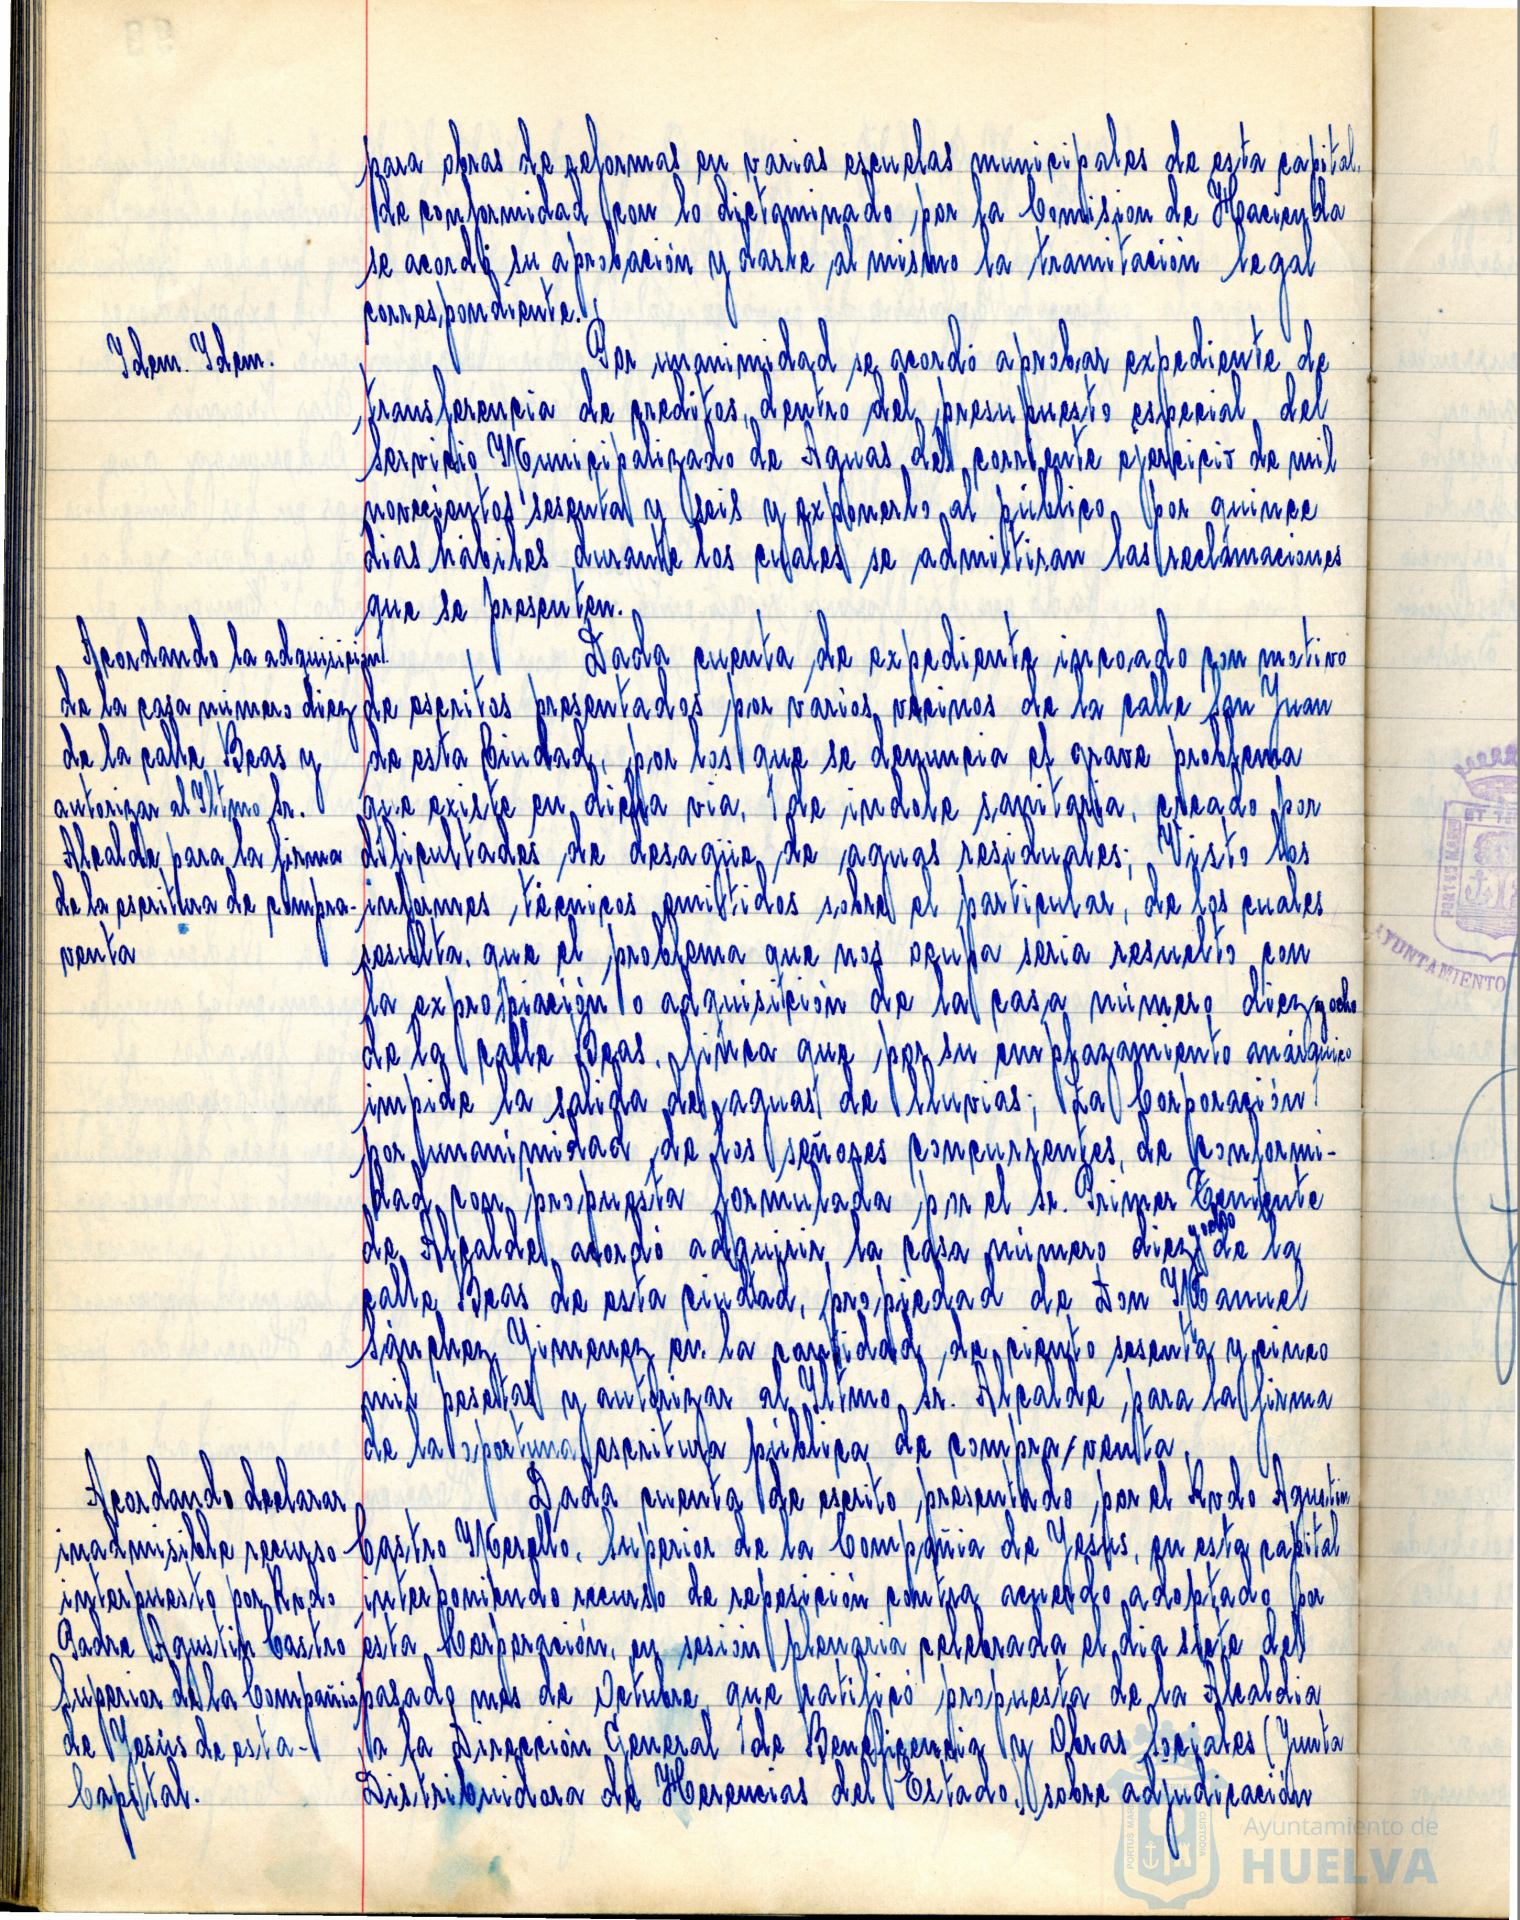 para obras de reformas en varias escuelas municipales de esta capital.
de conformidad con lo dictaminado por la Comision de Hacienda
se acordó su aprobación y darle al mismo la tramitación legal
correspondiente.
Idem. Idem.
Por unanimidad se acordó aprobar expediente de
transferencia de creditos, dentro del presupuesto especial del
Servicio Municipalizado de Aguas del corriente ejercicio de mil
novecientos sesenta y seis y exponerlo al público por quince
dias hábiles durante los cuales se admitiran las reclamaciones
que se presenten.
Acordando la adquisición
de la casa número diez
de la calle Beas y
autorizar al Iltmo Sr.
Alcalde para la firma
de la escritura de compra-
venta
Dada cuenta de expediente incoado con motivo
de escritos presentados por varios vecinos de la calle San Juan
de esta Ciudad, por los que se denuncia el grave problema
que existe en dicha via, de indole sanitaria, creado por
dificultades de desagüe de aguas residuales; Visto los
informes técnicos emitidos sobre el particular, de los cuales
resulta, que el problema que nos ocupa seria resuelto con
la expropiación o adquisición de la casa número diez y ocho
de la calle Beas, finca que por su emplazamiento anárquico
impide la salida de aguas de lluvias; La Corporación
por unanimidad de los señores concurrentes, de conformi-
dad con propuesta formulada por el Sr. Primer Teniente
de Alcalde, acordó adquirir la casa número diez y ocho de la
calle Beas de esta ciudad, propiedad de Don Manuel
Sánchez Jimenez en la cantidad de ciento sesenta y cinco
mil pesetas y autorizar al Iltmo Sr. Alcalde para la firma
de la oportuna escritura pública de compra/venta.
Acordando declarar
inadmisible recurso
interpuesto por Rvdo
Padre Agustin Castro
Superior de la Compañia
de Jesús de esta-
Capital.
Dada cuenta de escrito presentado por el Rvdo Agustin
Castro Merello, Superior de la Compañia de Jesús, en esta capital
interponiendo recurso de reposición contra acuerdo adoptado por
esta Corporación, en sesión plenaria celebrada el dia siete del
pasado mes de Octubre que ratificó propuesta de la Alcaldia
a la Dirección General de Beneficencia y Obras Sociales (Junta
Distribuidora de Herencias del Estado,) sobre adjudicación
PORTUS MARIS
AYUNTAMIENTO
Ayuntamiento de
HUELVA